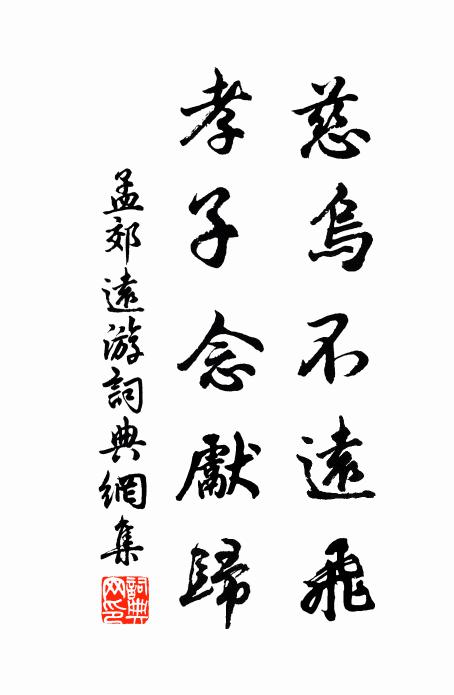 慈烏不遠飛
孝子念獻歸
孟郊遠游詞典網集
詞典网印